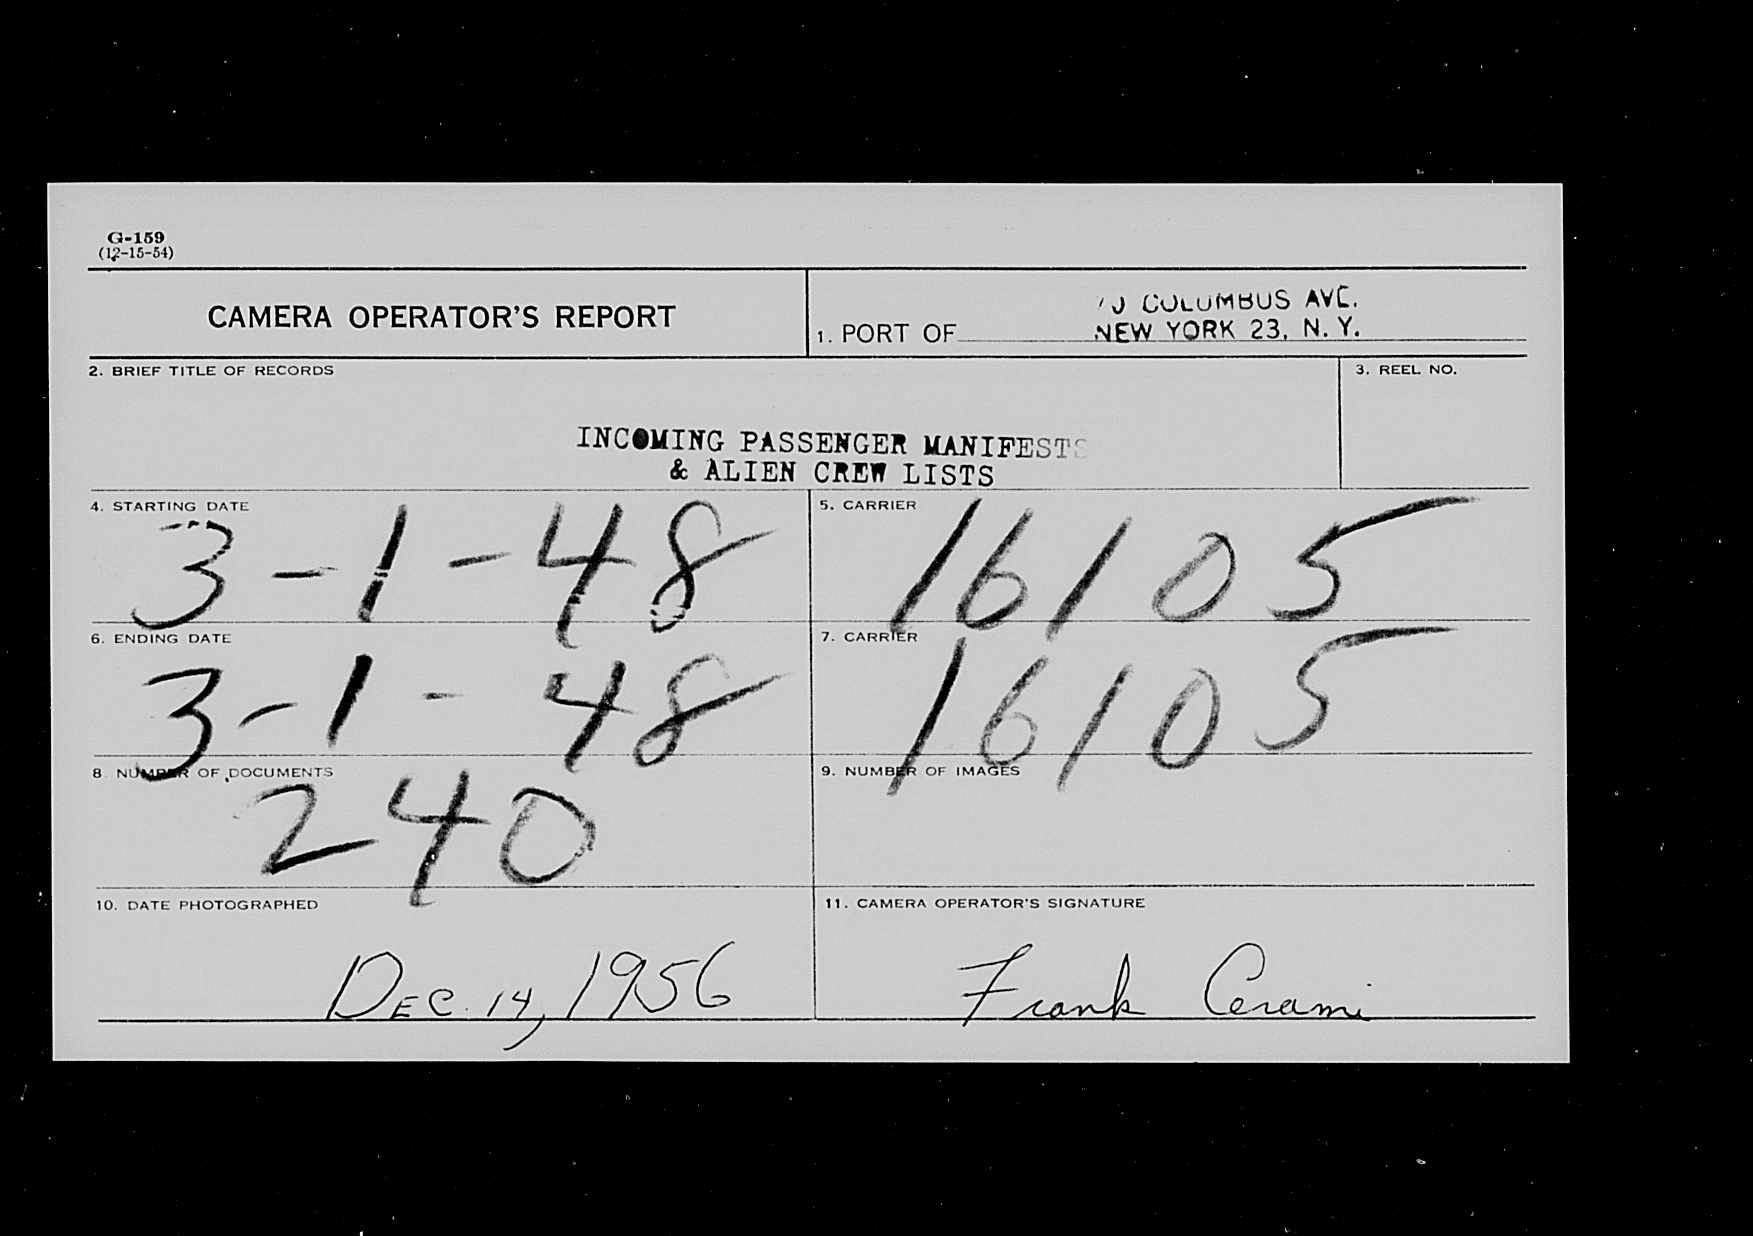 G-159
(12-15-54)
CAMERA OPERATOR'S REPORT
COLUMBUS AVE.
1. PORT OF NEW YORK 23, N. Y.
2. BRIEF TITLE OF RECORDS
3. REEL NO.
INCOMING PASSENGER MANIFESTS
& ALIEN CREW LISTS
4. STARTING DATE
3-1-48
5. CARRIER
16105
6. ENDING DATE
3-1-48
7. CARRIER
16105
8 NUMBER OF DOCUMENTS
240
9. NUMBER OF IMAGES
10. DATE PHOTOGRAPHED
DEC. 14, 1956
11. CAMERA OPERATOR'S SIGNATURE
Frank Cerami